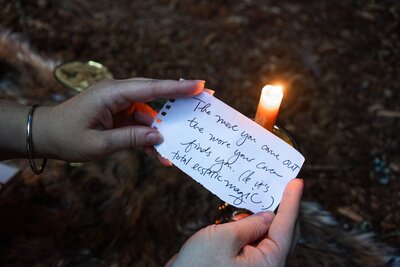 The more you come out
the more your coven
finds you. (& it's
total ecstatic magic.)